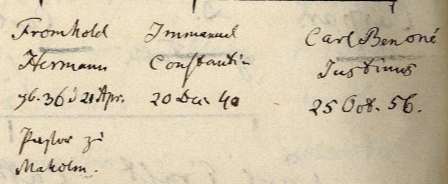 Fromhold
Hermann
gb. 36 d 21 Apr.
Pastor zu
Maholm.
Immanuel
Constantin
20 Dec 40
Carl Benoné
Justinus
25 Oct. 56.